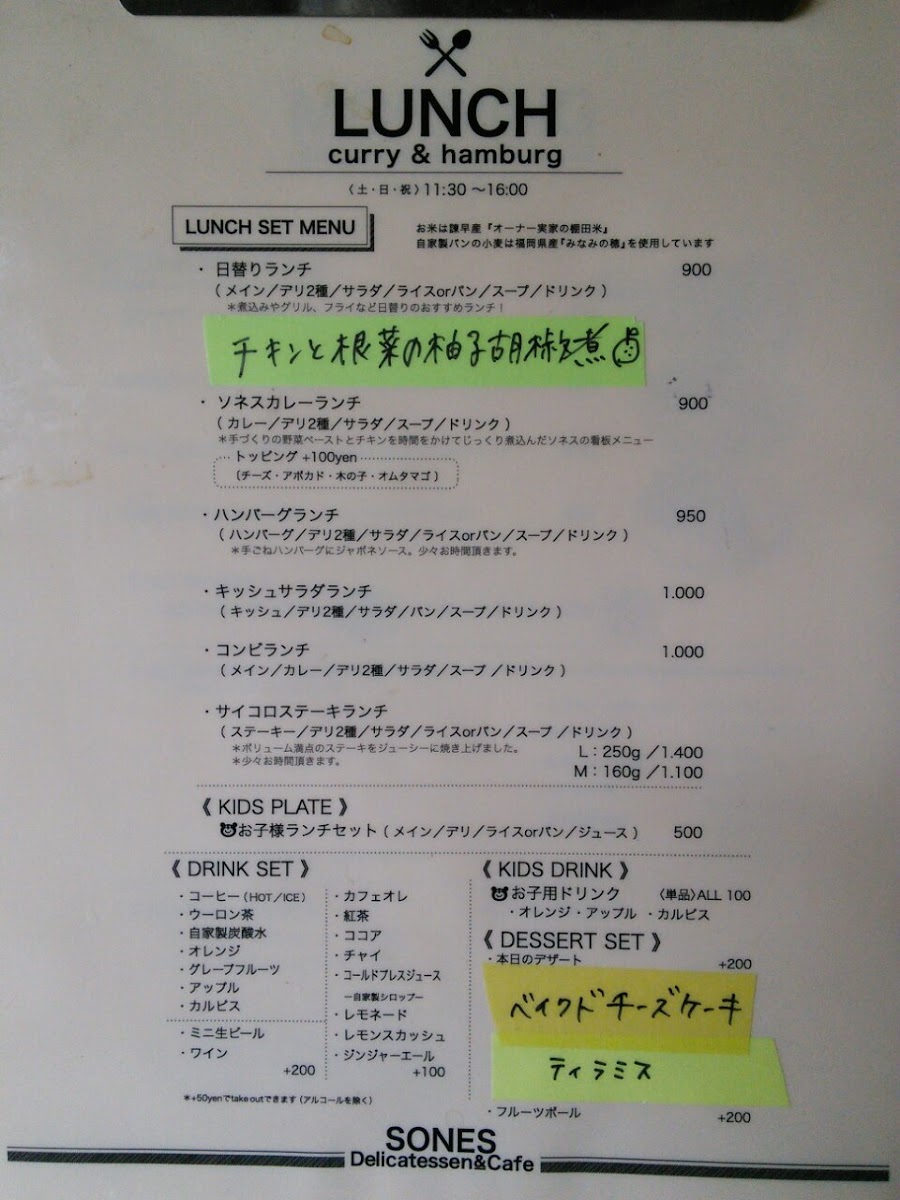 LUNCH
curry & hamburg
（土・日・祝）11:30 〜16:00
LUNCH SET MENU
お米は諫早産『オーナー実家の棚田米』
自家製パンの小麦は福岡県産『みなみの穂』を使用しています
・ 日替りランチ 900
（ メイン／デリ2種／サラダ／ライスorパン／スープ／ドリンク ）
＊煮込みやグリル、フライなど日替りのおすすめランチ！
チキンと根菜の柚子胡椒煮
・ ソネスカレーランチ 900
（ カレー／デリ2種／サラダ／スープ／ドリンク ）
＊手づくりの野菜ペーストとチキンを時間をかけてじっくり煮込んだソネスの看板メニュー
トッピング +100yen
（チーズ・アボカド・木の子・オムタマゴ ）
・ハンバーグランチ 950
（ ハンバーグ／デリ2種／サラダ／ライスorパン／スープ／ドリンク ）
＊手ごねハンバーグにジャポネソース。少々お時間頂きます。
・キッシュサラダランチ 1.000
（ キッシュ／デリ2種／サラダ／パン／スープ／ドリンク ）
・コンビランチ 1.000
（ メイン／カレー／デリ2種／サラダ／スープ ／ドリンク ）
・サイコロステーキランチ
（ ステーキー／デリ2種／サラダ／ライスorパン／スープ ／ドリンク ）
＊ボリューム満点のステーキをジューシーに焼き上げました。
＊少々お時間頂きます。
L：250g ／1.400
M：160g ／1.100
《 KIDS PLATE 》
お子様ランチセット（ メイン／デリ／ライスorパン／ジュース ） 500
《 DRINK SET 》
・コーヒー（HOT／ICE）
・ウーロン茶
・自家製炭酸水
・オレンジ
・グレープフルーツ
・アップル
・カルピス
・ミニ生ビール
・ワイン
+200
・カフェオレ
・紅茶
・ココア
・チャイ
・コールドプレスジュース
ー自家製シロップー
・レモネード
・レモンスカッシュ
・ジンジャーエール
+100
＊+50yenでtake outできます（アルコールを除く）
《 KIDS DRINK 》
お子用ドリンク 〈単品〉ALL 100
・オレンジ・アップル ・カルピス
《 DESSERT SET 》
・本日のデザート +200
ベイクドチーズケーキ
ティラミス
・フルーツボール +200
SONES
Delicatessen&Cafe